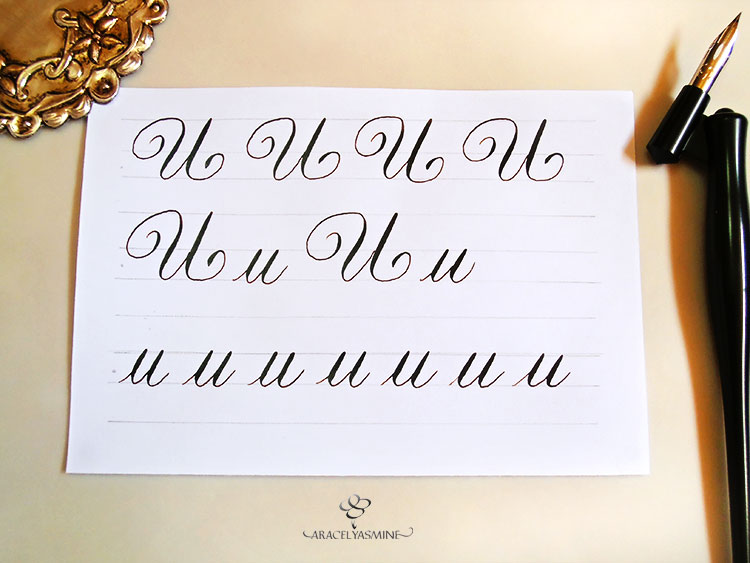 U U U U
U u U u
u u u u u u u
ARACELYASMINE